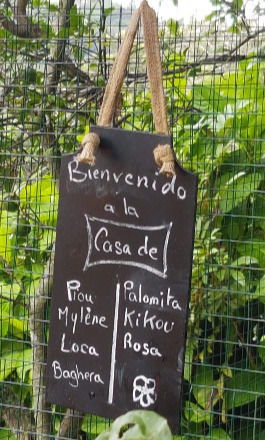 Bienvenido
a la
Casa de
Piou
Mylène
Loca
Baghera
Palomita
Kikou
Rosa